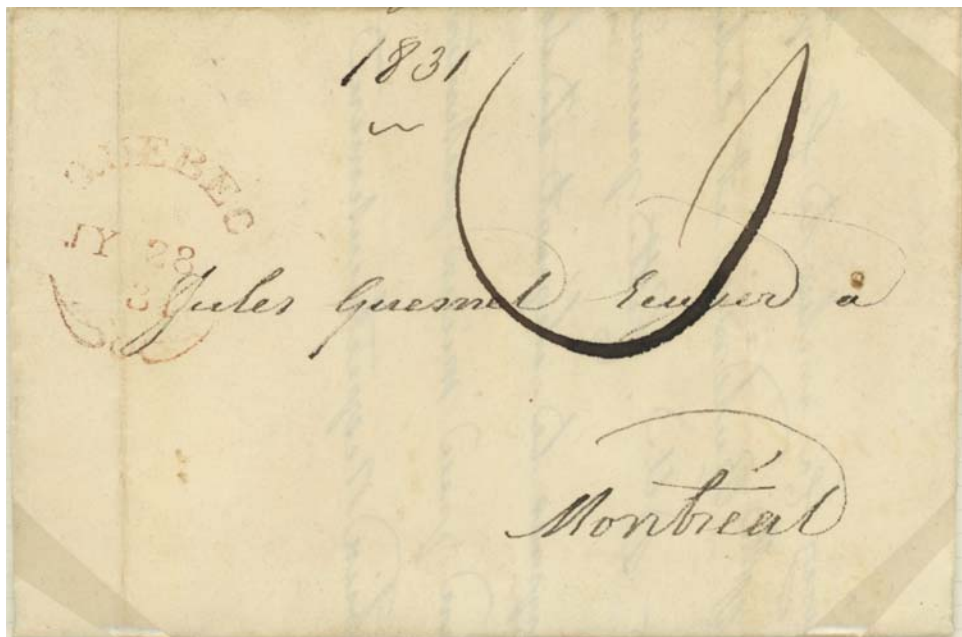 1831
QUEBEC
JY 28
31
Jules Quesnel Ecuyer à
Montréal